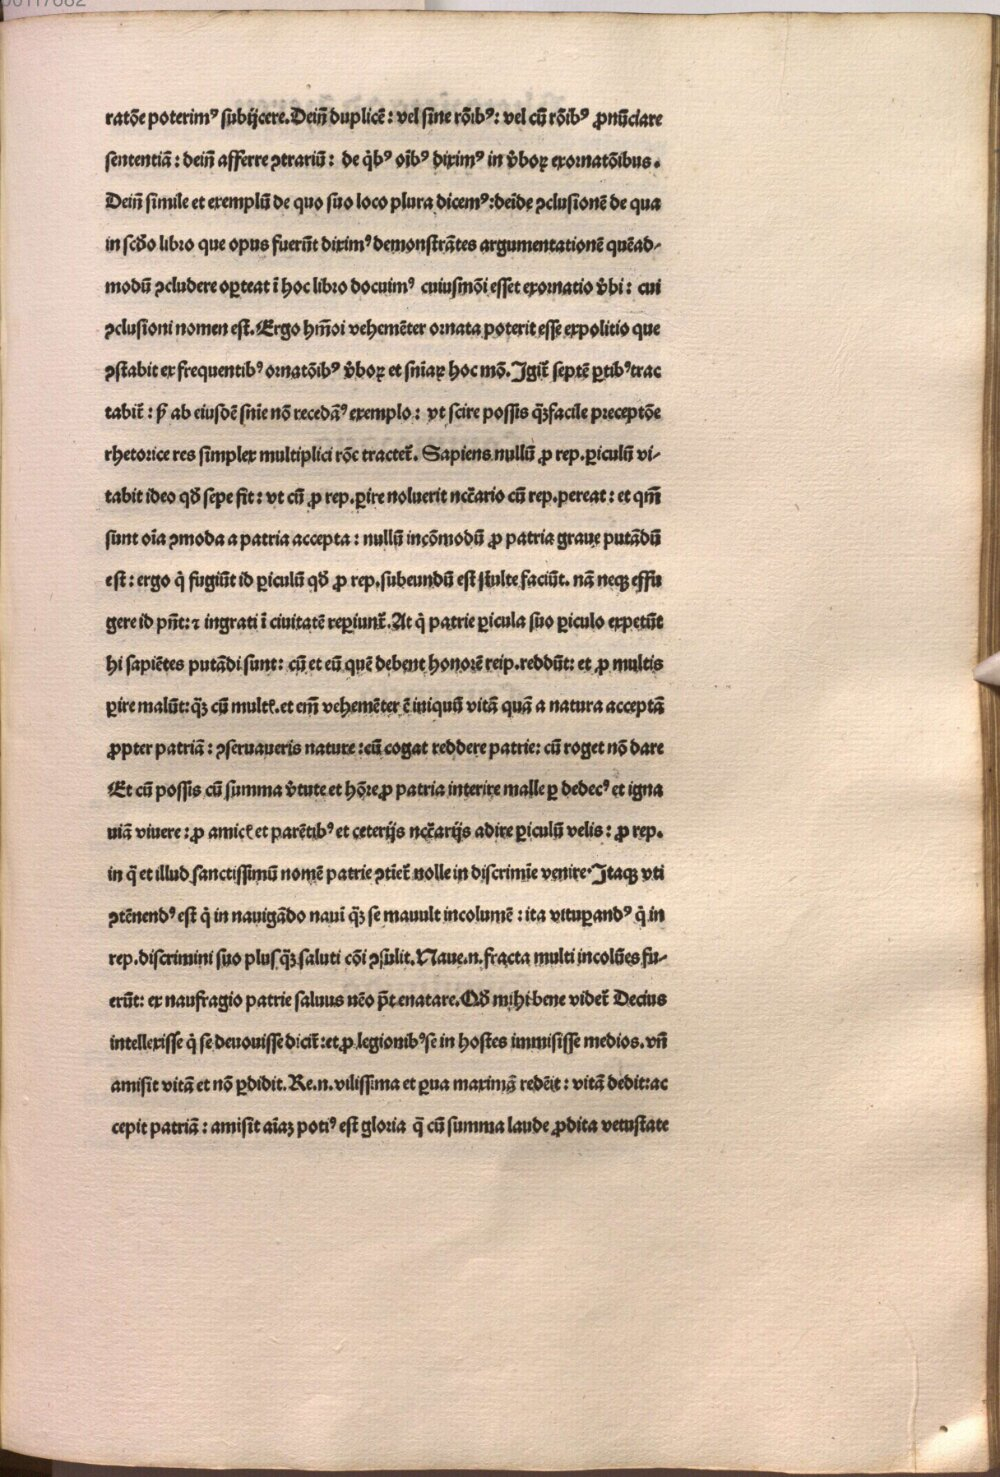 ratōe poterimꝰ subijcere. Dein̄ duplicē: vel sine rōibꝰ: vel cū rōibꝰ ꝓnūciare
sententiā: dein̄ afferre ꝯtrariū: de q̇bꝰ oībꝰ diximꝰ in v̇boꝝ exornatōibus.
Dein̄ simile et exemplū de quo suo loco plura dicemꝰ: deīde ꝯclusionē de qua
in scd̄o libro que opus fuerūt diximꝰ demonstrātes argumentationē quēad-
modū ꝯcludere oꝑteat ī hoc libro docuimꝰ cuiusmōi esset exornatio v̇bi: cui
ꝯclusioni nomen est. Ergo hm̄oi vehemēter ornata poterit esse expolitio que
ꝯstabit ex frequentibꝰ ornatōibꝰ v̇boꝝ et sn̄iaꝝ hoc mō. Igit̄ septē ꝑtibꝰ trac
tabit̄: ꝟ ab eiusdē sn̄ie nō recedāꝰ exemplo: vt scire possis q̄ꝫ facile preceptōe
rhetorice res simplex multiplici rōe tractet̄. Sapiens nullū ꝓ rep. ꝑiculū vi-
tabit ideo qd̄ sepe fit: vt cū ꝓ rep. ꝑire noluerit ncc̄ario cū rep. pereat: et qm̄
sunt oīa ꝯmoda a patria accepta: nullū incōmodū ꝓ patria graue putādū
est: ergo q̇ fugiūt id ꝑiculū qd̄ ꝓ rep. subeundū est stulte faciūt. nā neqꝫ effu
gere id pn̄t: ⁊ ingrati ī ciuitatē reꝑiunt̄. At q̇ patrie ꝑicula suo ꝑiculo expetūt
hi sapiētes putādi sunt: cū et eū quē debent honorē reip. reddūt: et ꝓ multis
ꝑire malūt: q̄ꝫ cū multꝭ. et em̄ vehemēter ē iniquū vitā quā a natura acceptā
ꝓpter patriā: ꝯseruaueris nature: cū cogat reddere patrie: cū roget nō dare
Et cū possis cū summa v̇tute et hōre ꝓ patria interire malle ꝑ dedecꝰ et igna
uiā viuere: ꝓ amicꝭ et parētibꝰ et ceterijs ncc̄arijs adire ꝑiculū velis: ꝓ rep.
in q̄ et illud sanctissimū nomē patrie ꝯtīet̄ nolle in discrimīe venire. Itaqꝫ vti
ꝯtēnendꝰ est q̇ in nauigādo nauī q̄ꝫ se mauult incolumē: ita vituꝑandꝰ q̇ in
rep. discrimini suo plus q̄ꝫ saluti cōi ꝯsulit. Naue .n. fracta multi incolūes fu-
erūt: ex naufragio patrie saluus nēo pōt enatare. Qd̄ mihi bene videt̄ Decius
intellexisse q̇ se deuouisse dicit̄: et ꝓ legionibꝰ se in hostes immisisse medios. vn̄
amisit vitā et nō ꝑdidit. Re .n. vilissima et ꝑua maximā redēit: vitā dedit: ac
cepit patriā: amisit aīaꝫ potiꝰ est gloria q̄ cū summa laude ꝓdita vetustate